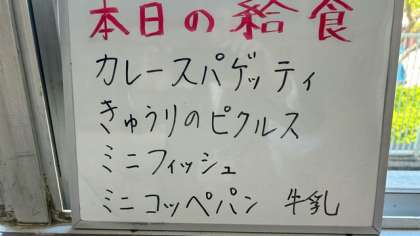 本日の給食
カレースパゲッティ
きゅうりのピクルス
ミニフィッシュ
ミニコッペパン 牛乳